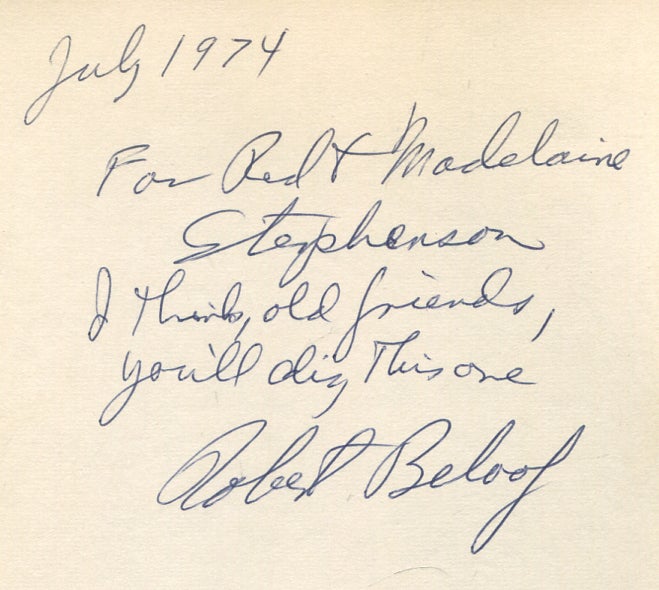 July 1974
For Red & Madelaine
Stephenson
I think, old friends,
you'll dig this one
Robert Beloof